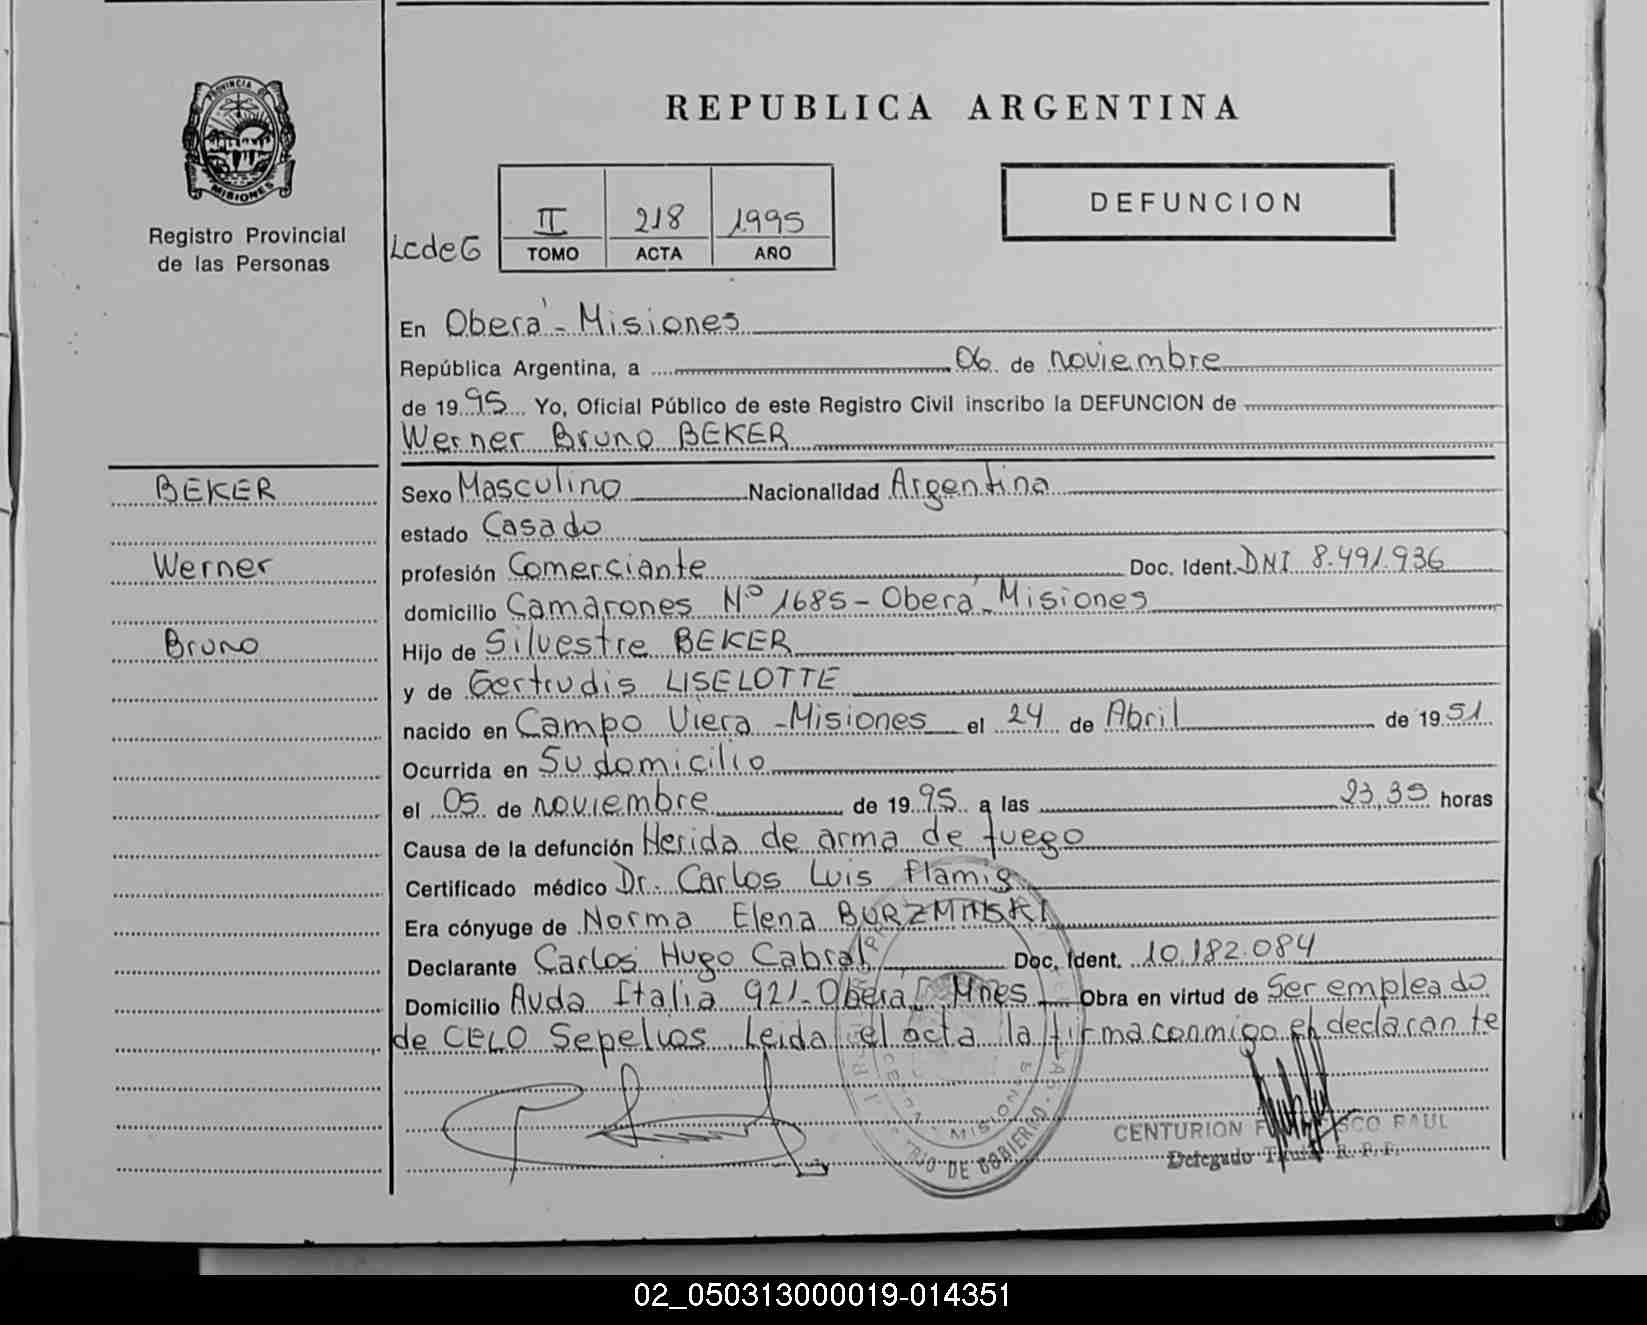 PROVINCIA DE
MISIONES
Registro Provincial
de las Personas
REPUBLICA ARGENTINA
LcdeG
II 218 1995
TOMO ACTA AÑO
DEFUNCION
En Oberá - Misiones
República Argentina, a 06 de noviembre
de 1995 Yo, Oficial Público de este Registro Civil inscribo la DEFUNCION de
Werner Bruno BEKER
BEKER
Werner
Bruno
Sexo Masculino Nacionalidad Argentina
estado Casado
profesión Comerciante Doc. Ident. DNI 8.491.936
domicilio Camarones Nº 1685 - Oberá - Misiones
Hijo de Silvestre BEKER
y de Gertrudis LISELOTTE
nacido en Campo Viera - Misiones el 24 de Abril de 1951
Ocurrida en Su domicilio
el 05 de noviembre de 1995 a las 23,35 horas
Causa de la defunción Herida de arma de fuego
Certificado médico Dr. Carlos Luis Flamig
Era cónyuge de Norma Elena BURZMINSKI
Declarante Carlos Hugo Cabral Doc. Ident. 10.182.084
Domicilio Avda Italia 921 - Oberá, Mnes Obra en virtud de Ser empleado
de CELO Sepelios. Leida el acta la firma conmigo el declarante
MISIONES
DE GOBIERNO
CENTURION FRANCISCO RAUL
Delegado Titular R. P. P.
02_050313000019-014351